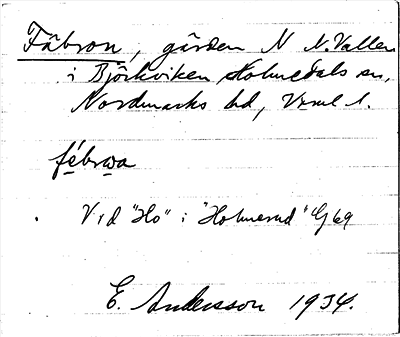 Fäbron, gården N N. Vallen
i Björkviken, Holmedals sn,
Nordmarks hd, Vrml l.
fébrωa
Vid "Ho" i "Holmerud" Gj 69
E. Andersson 1934.